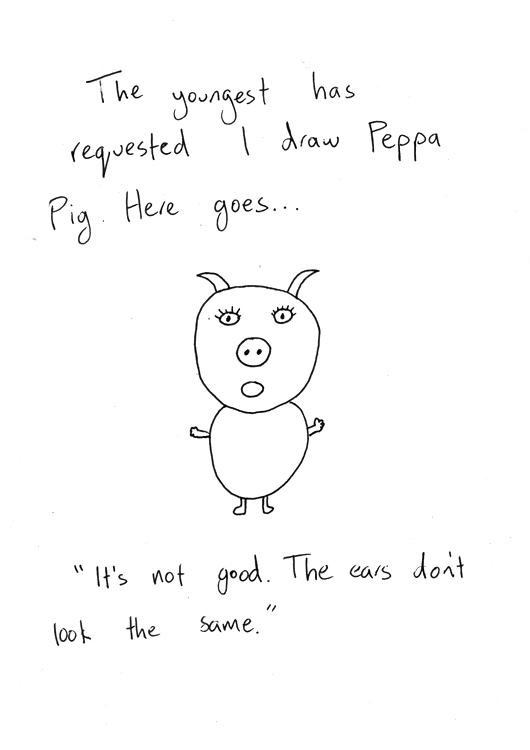 The youngest has
requested I draw Peppa
Pig. Here goes...
"It's not good. The ears don't
look the same."